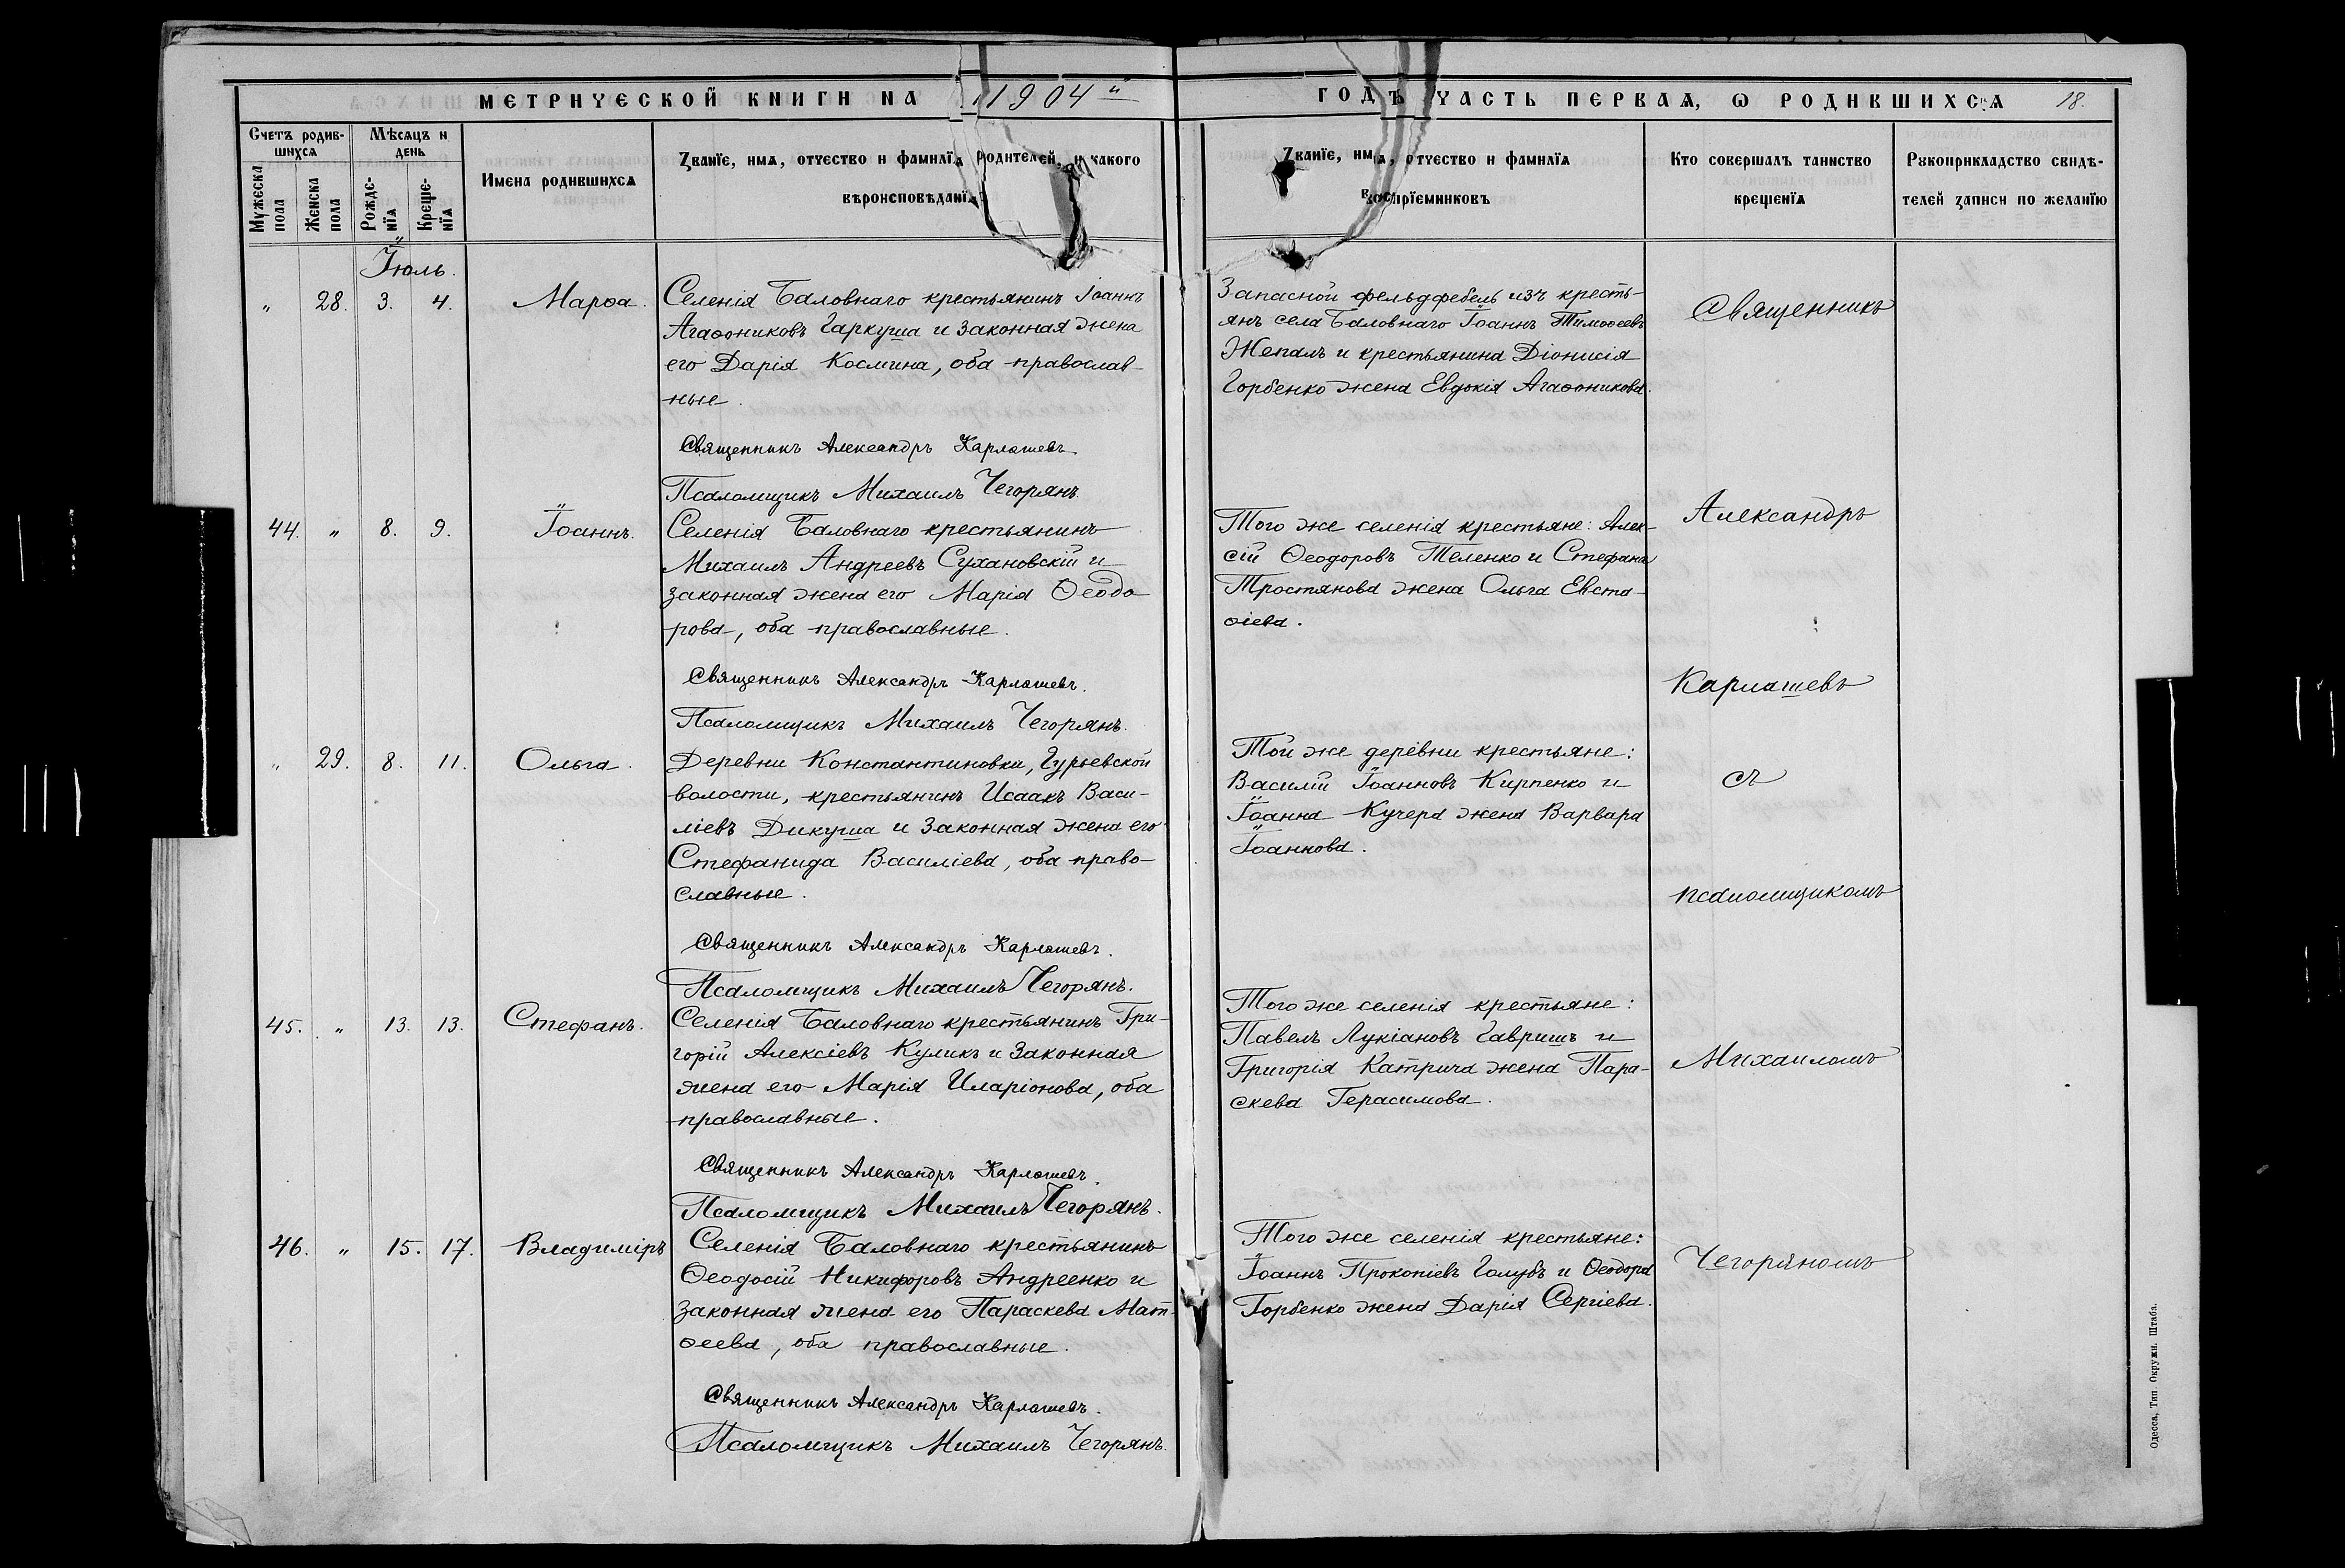 МЕТРИЧЕСКОЙ КНИГИ НА 1904й
ГОДЪ ЧАСТЬ ПЕРВАЯ, Ѡ РОДИВШИХСЯ 18.
Счетъ родив-
шихся
Мужеска
пола
Женска
пола
Мѣсяцъ и
день
Рожде-
нія
Креще-
нія
Имена родившихся
Званіе, имя, отчество и фамилія родителей, и какого
вѣроисповѣданія
Званіе, имя, отчество и фамилія
воспріемниковъ
Кто совершалъ таинство
крещенія
Рукоприкладство свидѣ-
телей записи по желанію
Іюль.
" 28. 3. 4. Марѳа.
Селенія Баловнаго крестьянинъ Іоаннъ
Агаѳониковъ Гаркуша и законная жена
его Дарія Космина, оба православ-
ные.
Священникъ Александръ Карлашевъ.
Псаломщикъ Михаилъ Чегорянъ.
Запасной фельдфебель изъ кресть-
янъ села Баловнаго Іоаннъ Тимоѳеевъ
Жепалъ и крестьянина Діонисія
Горбенко жена Евдокія Агаѳоникова.
44. " 8. 9. Іоаннъ.
Селенія Баловнаго крестьянинъ
Михаилъ Андреевъ Сухановскій и
законная жена его Марія Ѳеодо-
рова, оба православные.
Священникъ Александръ Карлашевъ.
Псаломщикъ Михаилъ Чегорянъ.
Того же селенія крестьяне: Алек-
сій Ѳеодоровъ Теленко и Стефана
Тростянова жена Ольга Евста-
ѳіева.
" 29. 8. 11. Ольга.
Деревни Константиновки, Гурьевской
волости, крестьянинъ Исаакъ Васи-
ліевъ Дикуша и законная жена его
Стефанида Василіева, оба право-
славные.
Священникъ Александръ Карлашевъ.
Псаломщикъ Михаилъ Чегорянъ.
Той же деревни крестьяне:
Василій Іоанновъ Кирпенко и
Іоанна Кучера жена Варвара
Іоаннова.
45. " 13. 13. Стефанъ.
Селенія Баловнаго крестьянинъ Гри-
горій Алексіевъ Куликъ и законная
жена его Марія Иларіонова, оба
православные.
Священникъ Александръ Карлашевъ.
Псаломщикъ Михаилъ Чегорянъ.
Того же селенія крестьяне:
Павелъ Лукіановъ Гавришъ и
Григорія Катрича жена Пара-
скева Герасимова.
46. " 15. 17. Владиміръ
Селенія Баловнаго крестьянинъ
Ѳеодосій Никифоровъ Андреенко и
законная жена его Параскева Мат-
ѳеева, оба православные.
Священникъ Александръ Карлашевъ.
Псаломщикъ Михаилъ Чегорянъ.
Того же селенія крестьяне:
Іоаннъ Прокопіевъ Голубъ и Ѳеодора
Горбенко жена Дарія Сергіева.
Священникъ
Александръ
Карлашевъ
съ
псаломщикомъ
Михаиломъ
Чегоряномъ
Одесса, Тип. Окружн. Штаба.